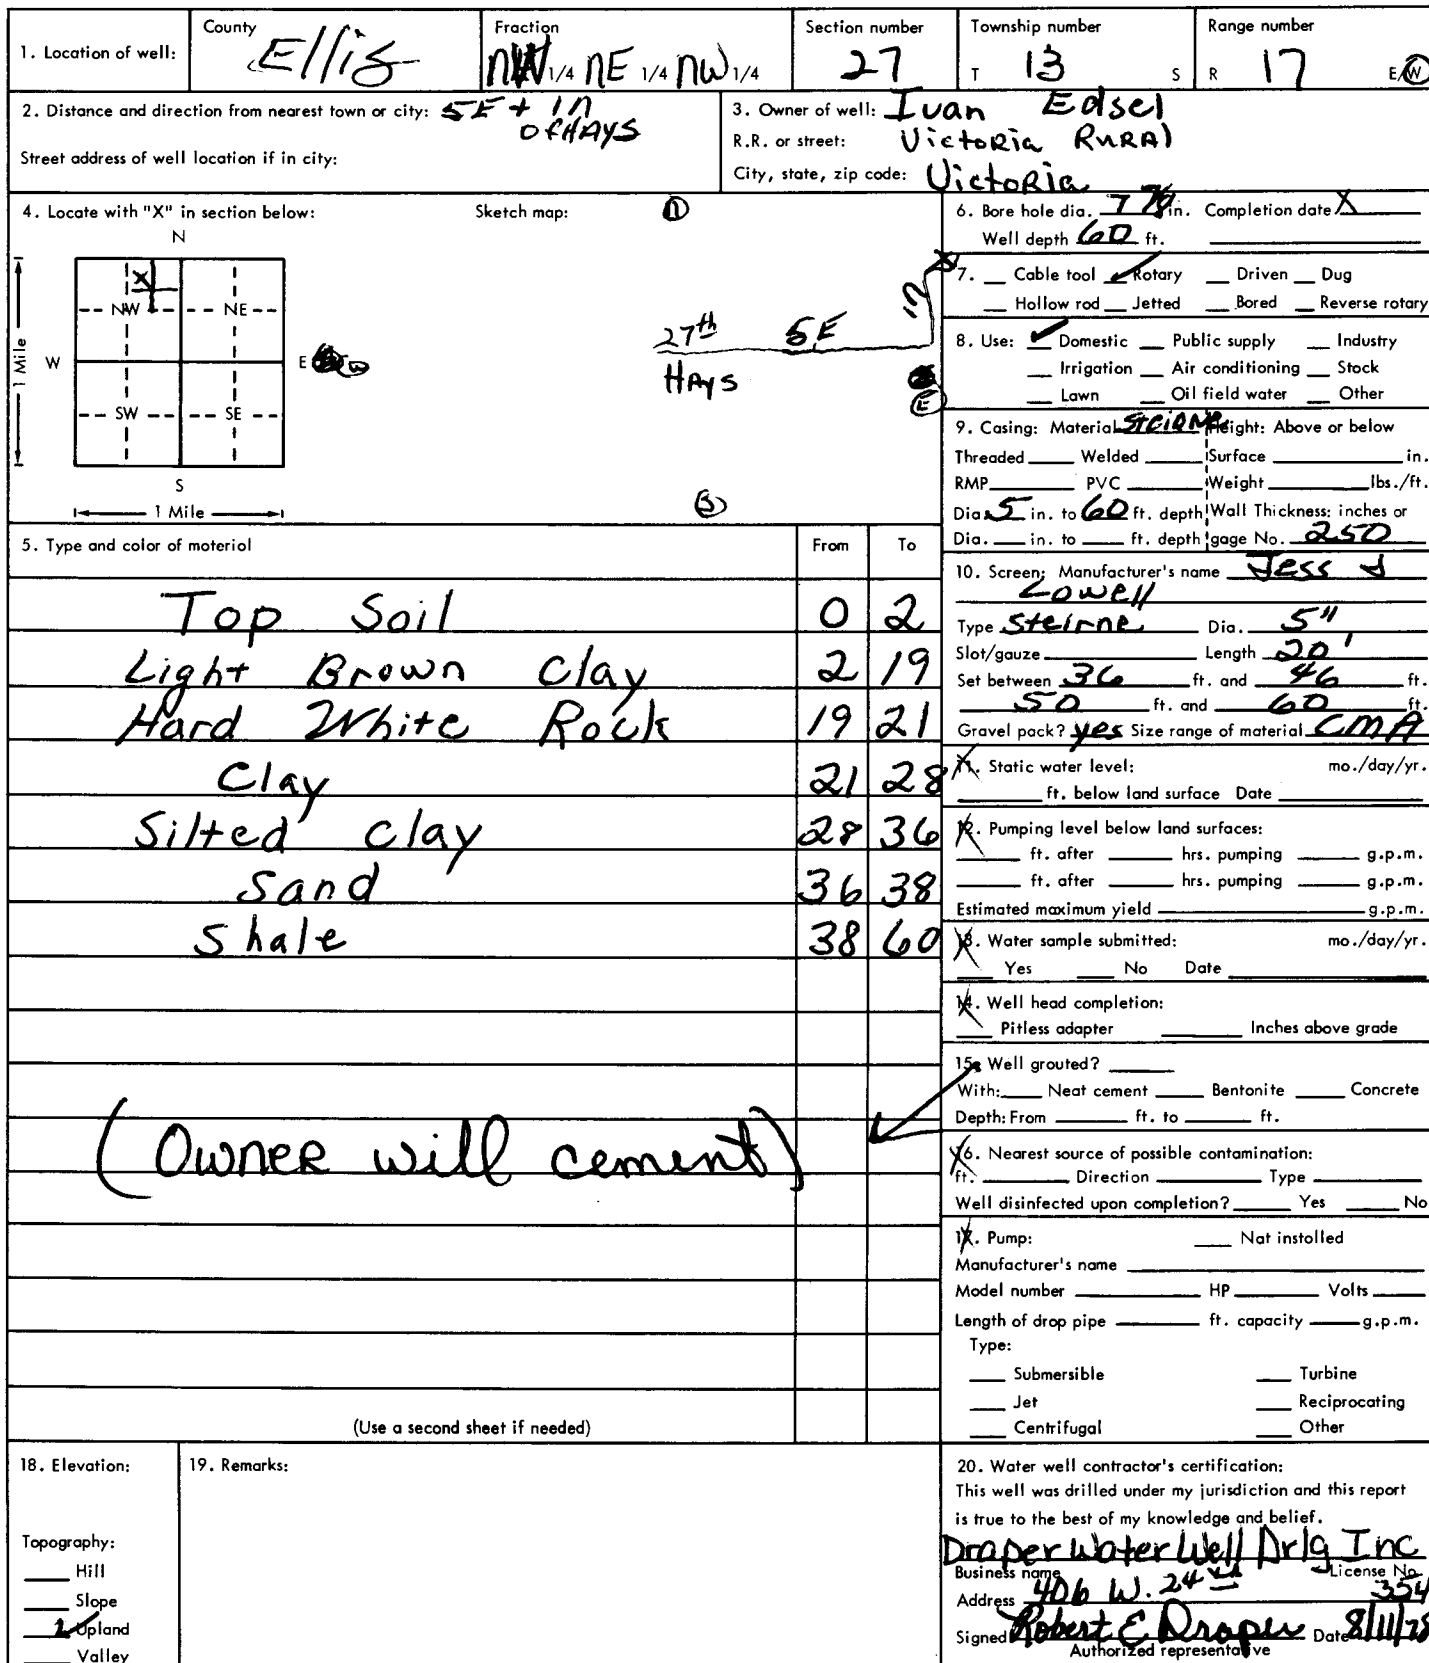 1. Location of well: County Ellis Fraction NW 1/4 NE 1/4 NW 1/4 Section number 27 Township number T 13 S Range number R 17 E/W
2. Distance and direction from nearest town or city: 5E + 1N
of HAYS
Street address of well location if in city:
3. Owner of well: Ivan Edsel
R.R. or street: Victoria RURAl
City, state, zip code: Victoria
4. Locate with "X" in section below: Sketch map: N
N
X
NW NE
W E W
SW SE
S
1 Mile
1 Mile
27th 5E
HAYS
1N
X
E
S
5. Type and color of material From To
Top Soil 0 2
Light Brown Clay 2 19
Hard White Rock 19 21
Clay 21 28
Silted Clay 28 36
Sand 36 38
Shale 38 60
(Owner will cement)
(Use a second sheet if needed)
6. Bore hole dia. 7 7/8 in. Completion date X
Well depth 60 ft.
7. Cable tool ✓ Rotary Driven Dug
Hollow rod Jetted Bored Reverse rotary
8. Use: ✓ Domestic Public supply Industry
Irrigation Air conditioning Stock
Lawn Oil field water Other
9. Casing: Material Height: Above or below
Threaded Welded Surface in.
RMP PVC Weight lbs./ft.
Dia. 5 in. to 60 ft. depth Wall Thickness: inches or
Dia. in. to ft. depth gage No. 250
10. Screen: Manufacturer's name Jess J
Lowell
Type Steirne Dia. 5"
Slot/gauze Length 20'
Set between 36 ft. and 46 ft.
50 ft. and 60 ft.
Gravel pack? yes Size range of material CMA
11. Static water level: mo./day/yr.
ft. below land surface Date
12. Pumping level below land surfaces:
ft. after hrs. pumping g.p.m.
ft. after hrs. pumping g.p.m.
Estimated maximum yield g.p.m.
13. Water sample submitted: mo./day/yr.
Yes No Date
14. Well head completion:
Pitless adapter Inches above grade
15. Well grouted?
With: Neat cement Bentonite Concrete
Depth: From ft. to ft.
16. Nearest source of possible contamination:
ft. Direction Type
Well disinfected upon completion? Yes No
17. Pump: Nat instolled
Manufacturer's name
Model number HP Volts
Length of drop pipe ft. capacity g.p.m.
Type:
Submersible Turbine
Jet Reciprocating
Centrifugal Other
18. Elevation:
Topography:
Hill
Slope
✓ Upland
Valley
19. Remarks:
20. Water well contractor's certification:
This well was drilled under my jurisdiction and this report
is true to the best of my knowledge and belief.
Draper Water Well Drlg Inc
Business name License No.
Address 406 W. 24th 354
Signed Robert E Draper Date 8/11/78
Authorized representative